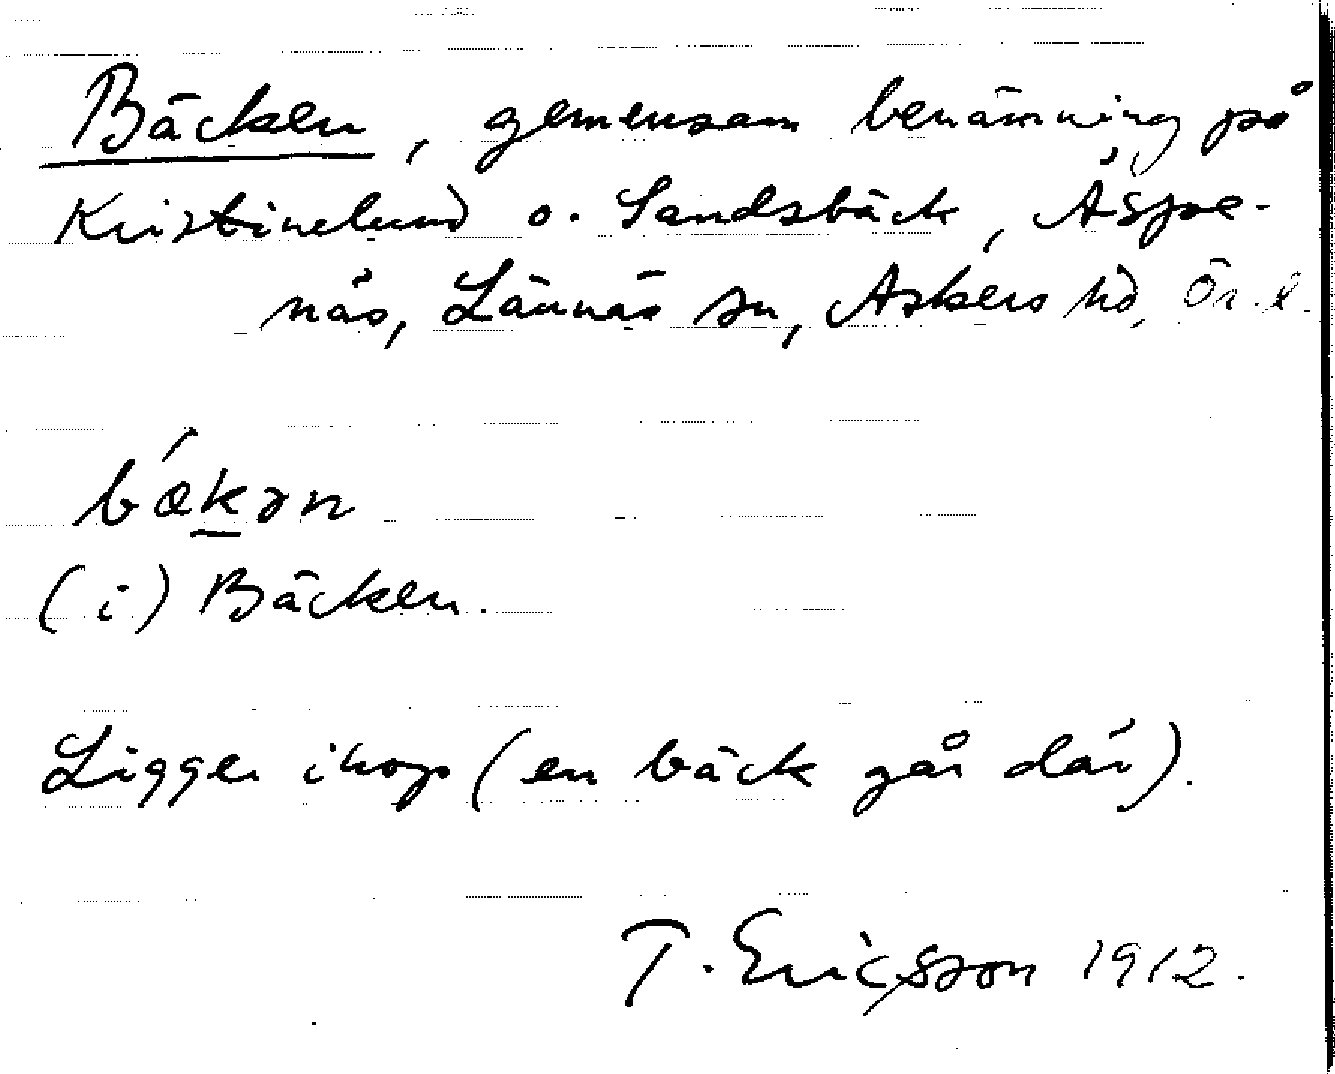 Bäcken, gemensam benämning på
Kristinelund o. Sandsbäck, Äspe-
näs, Lännäs sn, Askers hd, Ör. l.
bǽkən
(i) Bäcken.
Ligger ihop (en bäck går där).
T. Ericsson 1912.